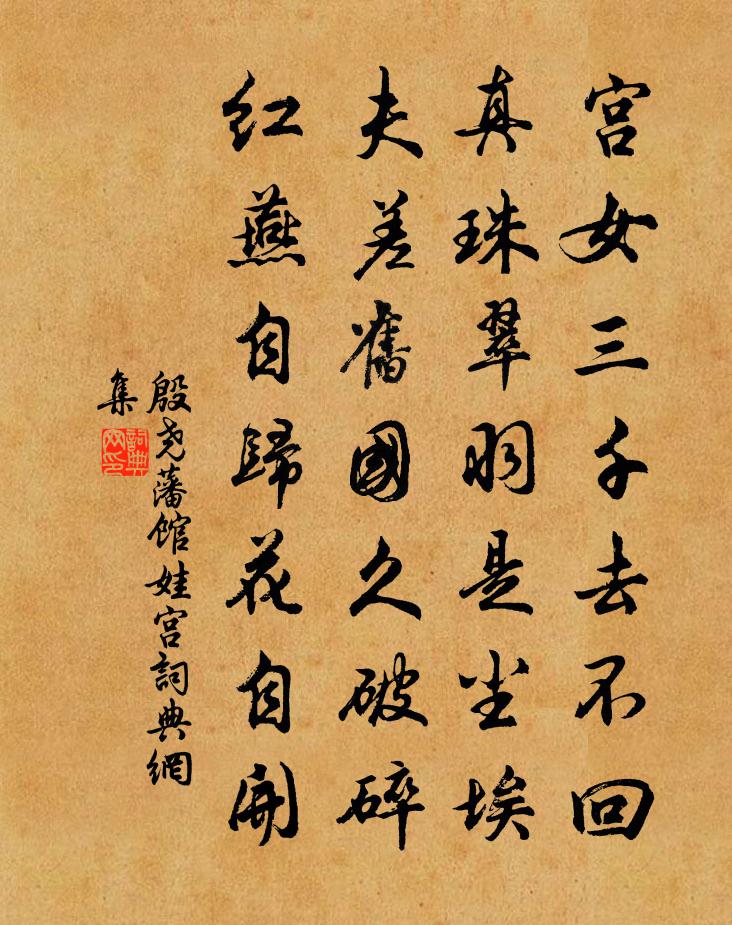 宫女三千去不回
真珠翠羽是尘埃
夫差舊國久破碎
红燕自歸花自開
殷尧藩馆娃宫詞典網
集
詞典網印